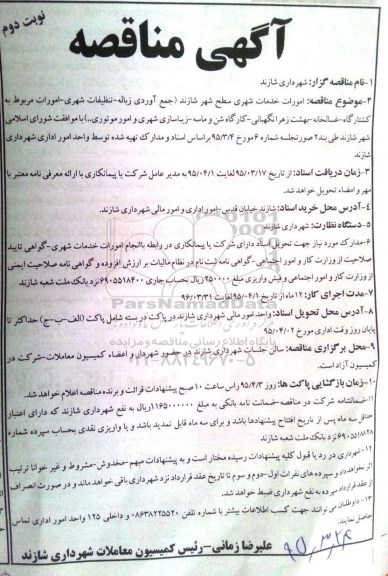 نوبت دوم
آگهی مناقصه
۱-نام مناقصه گزار: شهرداری شازند
۲-موضوع مناقصه: امورات خدمات شهری سطح شهر شازند (جمع آوردی زباله-تنظیفات شهری-امورات مربوط به
کشتارگاه-غسالخانه-بهشت زهرا نگهبانی-کارگاه شن و ماسه-زیباسازی شهری و امور موتوری،،) با موافقت شورای اسلامی
شهر شازند طی بند۲ صورتجلسه شماره ۶ مورخ ۹۵/۳/۴ براساس اسناد و مدارک تهیه شده توسط واحد امور اداری شهرداری
شازند
۳-زمان دریافت اسناد: از تاریخ ۹۵/۰۳/۱۷ لغایت ۹۵/۰۴/۱ به مدیر عامل شرکت یا پیمانکاری با ارائه معرفی نامه معتبر با
مهر و امضاء تحویل خواهد شد.
۴-آدرس محل خرید اسناد: شازند خیابان قدس-امور اداری و امور مالی شهرداری شازند.
۵-دستگاه نظارت: شهرداری شازند
۶-مدارک مورد نیاز جهت تحویل اسناد دارای شرکت یا پیمانکاری در رابطه باانجام امورات خدمات شهری-گواهی تایید
صلاحیت از وزارت کار و امور اجتماعی-گواهی نامه ثبت نام در نظام مالیات بر ارزش افزوده و گواهی نامه صلاحیت ایمنی
از وزارت کار و امور اجتماعی و فیش واریزی مبلغ ۲۵۰۰۰۰ ریال بحساب جاری ۶۹۰۵۵۱۸۴۰۰ نزد بانک ملت شعبه شازند
۷-مدت اجرای کار: ۱۲ماه از تاریخ ۹۵/۰۴/۱ لغایت ۹۶/۰۳/۳۱
۸-آدرس محل تحویل اسناد: واحد امور مالی شهرداری شازند در پاکت در بسته شامل پاکت (الف-ب-ج) حداکثر تا
پایان روز وقت اداری مورخ ۹۵/۰۴/۰۲
۹-محل برگزاری مناقصه: سالن جلسات شهرداری شازند در حضور شهردار و اعضاء کمیسیون معاملات-شرکت در
کمیسیون آزاد است.
۱۰-زمان بازگشایی پاکت ها: روز ۹۵/۴/۳ راس ساعت ۱۰ صبح پیشنهادات قرائت و برنده مناقصه اعلام خواهد شد.
۱۱-ضمانتنامه شرکت در مناقصه-ضمانت نامه بانکی به مبلغ ۱۱۶۵۰۰۰۰۰۰ ریال به نفع شهرداری شازند که دارای اعتبار
حداقل سه ماه پس از تاریخ افتتاح پیشنهادها باشد و برای سه ماه قابل تمدید باشد و یا واریزی نقدی بحساب سپرده شماره
۶۹۰۵۵۱۸۱۲۸ نزد بانک ملت شعبه شازند
۱۲-شهرداری در رد یا قبول کلیه پیشنهادات رسیده مختار است و به پیشنهادات مبهم-مخدوش-مشروط و غیر خوانا ترتیب
اثر نخواهد داد و سپرده های نفرات اول-دوم و سوم تا تاریخ عقد قرارداد نزد شهرداری باقی خواهد ماند و در صورت انصراف
از عقد قرارداد سپرده به نفع شهرداری ضبط خواهد شد.
۱۳-داوطلبان می توانند جهت کسب اطلاعات بیشتر با شماره تلفن ۰۸۶۳۸۲۲۵۵۲۰ و داخلی ۱۲۵ واحد امور اداری تماس
حاصل نمایند.
علیرضا زمانی-رئیس کمیسیون معاملات شهرداری شازند
۹۵,۳,۲۴
ParsNamadData
پایگاه اطلاع رسانی مناقصه و مزایده
۰۲۱-۸۸۳۴۹۶۷۰-۵